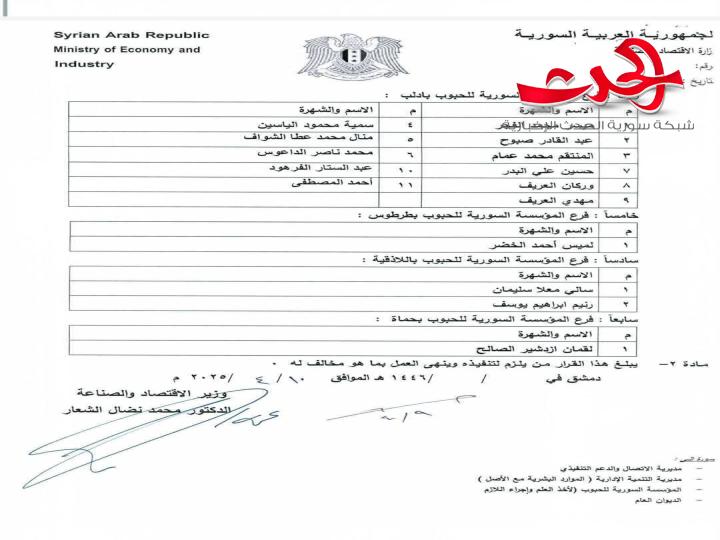 Syrian Arab Republic
Ministry of Economy and
Industry
الجمهورية العربية السورية
الحدث
شبكة سورية الحدث الإخبارية
السورية للحبوب بادلب :
م الاسم والشهرة م الاسم والشهرة
٤ سمية محمود الياسين
٢ عبد القادر صبوح ٥ منال محمد عطا الشواف
٣ المنتقم محمد عمام ٦ محمد ناصر الداعوس
٧ حسين علي البدر ١٠ عبد الستار الفرهود
٨ وركان العريف ١١ أحمد المصطفى
٩ مهدي العريف
خامساً : فرع المؤسسة السورية للحبوب بطرطوس :
م الاسم والشهرة
١ لميس أحمد الخضر
سادساً : فرع المؤسسة السورية للحبوب باللاذقية :
م الاسم والشهرة
١ سالي معلا سليمان
٢ رنيم ابراهيم يوسف
سابعاً : فرع المؤسسة السورية للحبوب بحماة :
م الاسم والشهرة
١ لقمان ازدشير الصالح
مادة ٢– يبلغ هذا القرار من يلزم لتنفيذه وينهى العمل بما هو مخالف له .
دمشق في / /١٤٤٦ هـ الموافق ١٠/ ٤ /٢٠٢٥ م
وزير الاقتصاد والصناعة
الدكتور محمد نضال الشعار
صورة إلى :
– مديرية الاتصال والدعم التنفيذي
– مديرية التنمية الإدارية ( الموارد البشرية مع الأصل )
– المؤسسة السورية للحبوب (لأخذ العلم وإجراء اللازم
– الديوان العام